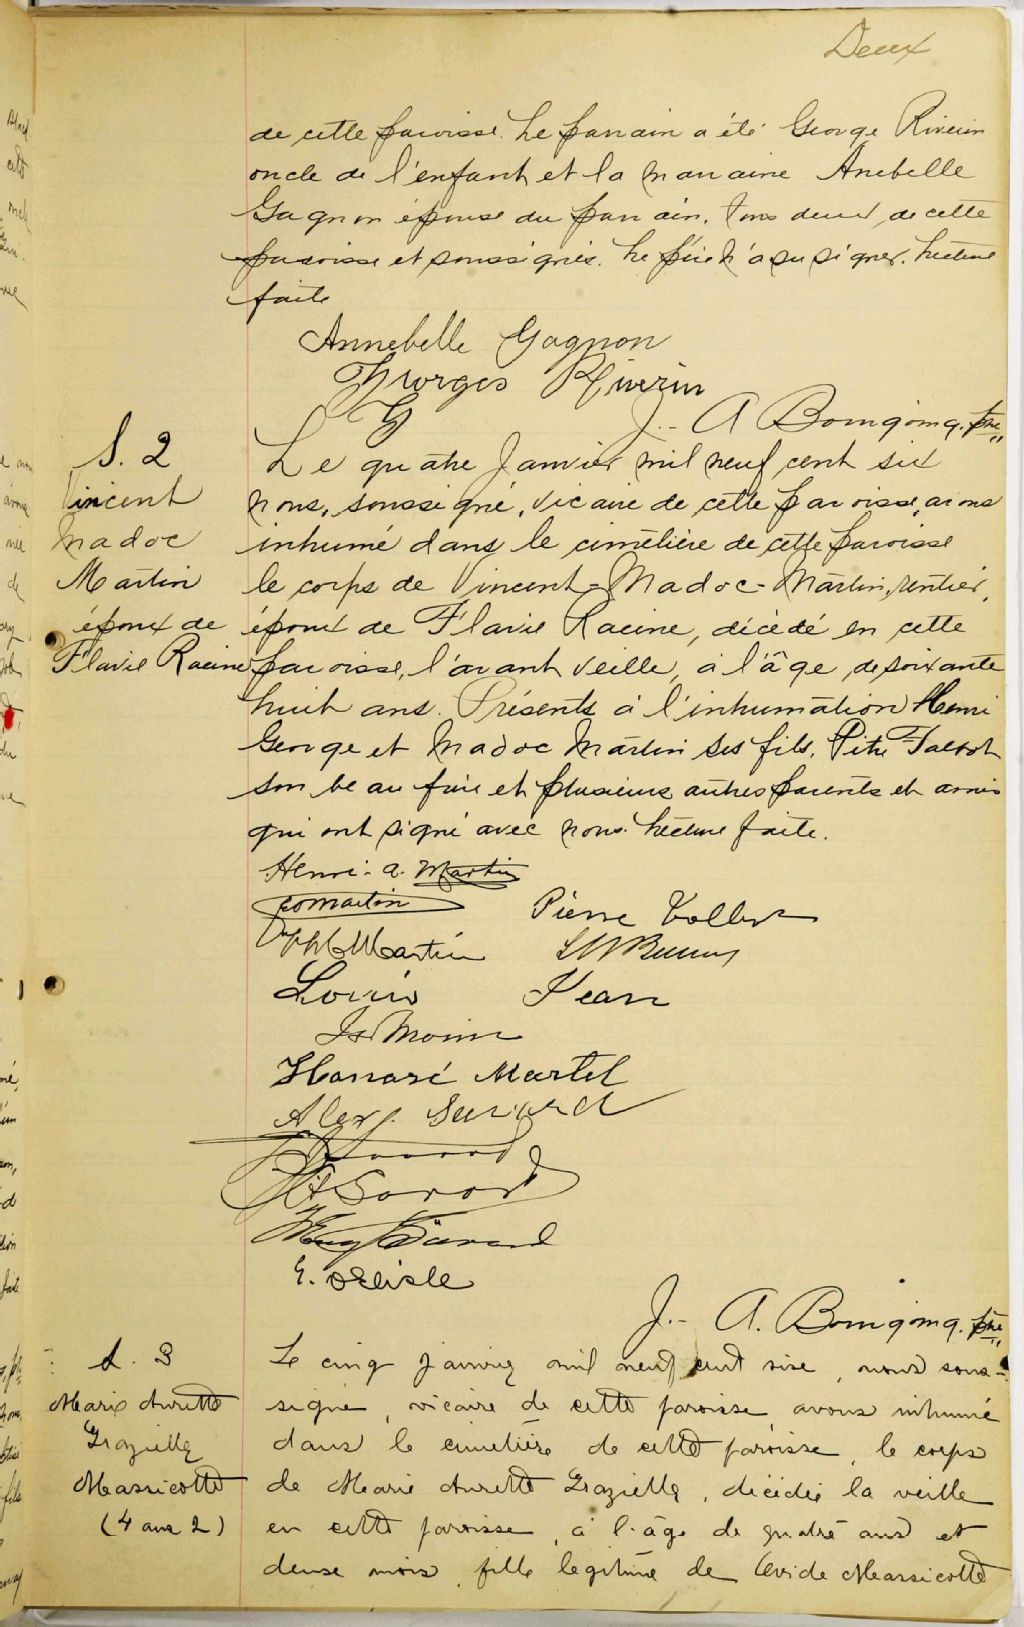 Deux
de cette paroisse. Le parrain a été George Riverin
oncle de l'enfant et la marraine Anebelle
Gagnon épouse du parrain, tous deux de cette
paroisse et soussignés. Le père n'a su signer. Lecture
faite
Annebelle Gagnon
Georges Riverin
J.- A Bourgoing. ptre
S. 2
Vincent
Madoc
Martin
époux de
Flavie Racine
Le quatre Janvier mil neuf cent six
nous, soussigné, vicaire de cette paroisse, avons
inhumé dans le cimetière de cette paroisse
le corps de Vincent-Madoc-Martin, rentier,
époux de Flavie Racine, décédé en cette
paroisse, l'avant veille, à l'âge de soixante
huit ans. Présents à l'inhumation Henri
George et Madoc Martin ses fils, Pitre Talbot
son beau frère et plusieurs autres parents et amis
qui ont signé avec nous. Lecture faite.
Henri. a. Martin
Martin
Martin
Pierre
Louis Jean
Morin
Honoré Martel
Alex J. Savard
Savard
Savard
Savard
E. Delisle
J.- A. Bourgoing. ptre
S. 3
Marie Aurette
Graziella
Massicotte
(4 ans 2)
Le cinq janvier mil neuf cent six, nous sous-
signé, vicaire de cette paroisse, avons inhumé
dans le cimetière de cette paroisse, le corps
de Marie Aurette Graziella, décédée la veille
en cette paroisse, à l'âge de quatre ans et
deux mois, fille légitime de Ovide Massicotte